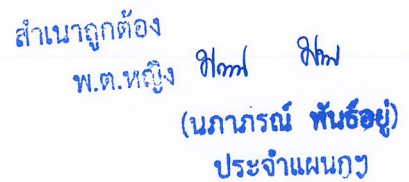 สำเนาถูกต้อง
พ.ต.หญิง
(นภาภรณ์ พันธ์อยู่)
ประจำแผนกฯ